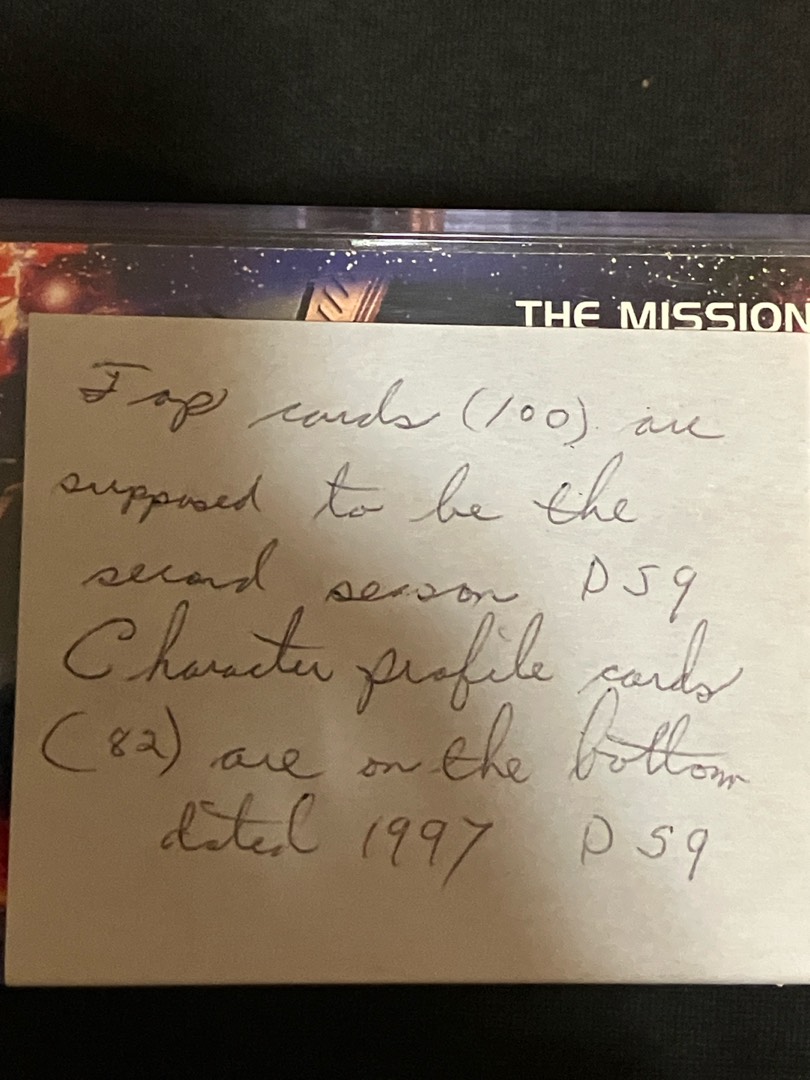 THE MISSION
Top cards (100) are
supposed to be the
second season DS9
Character profile cards
(82) are on the bottom
dated 1997 DS9